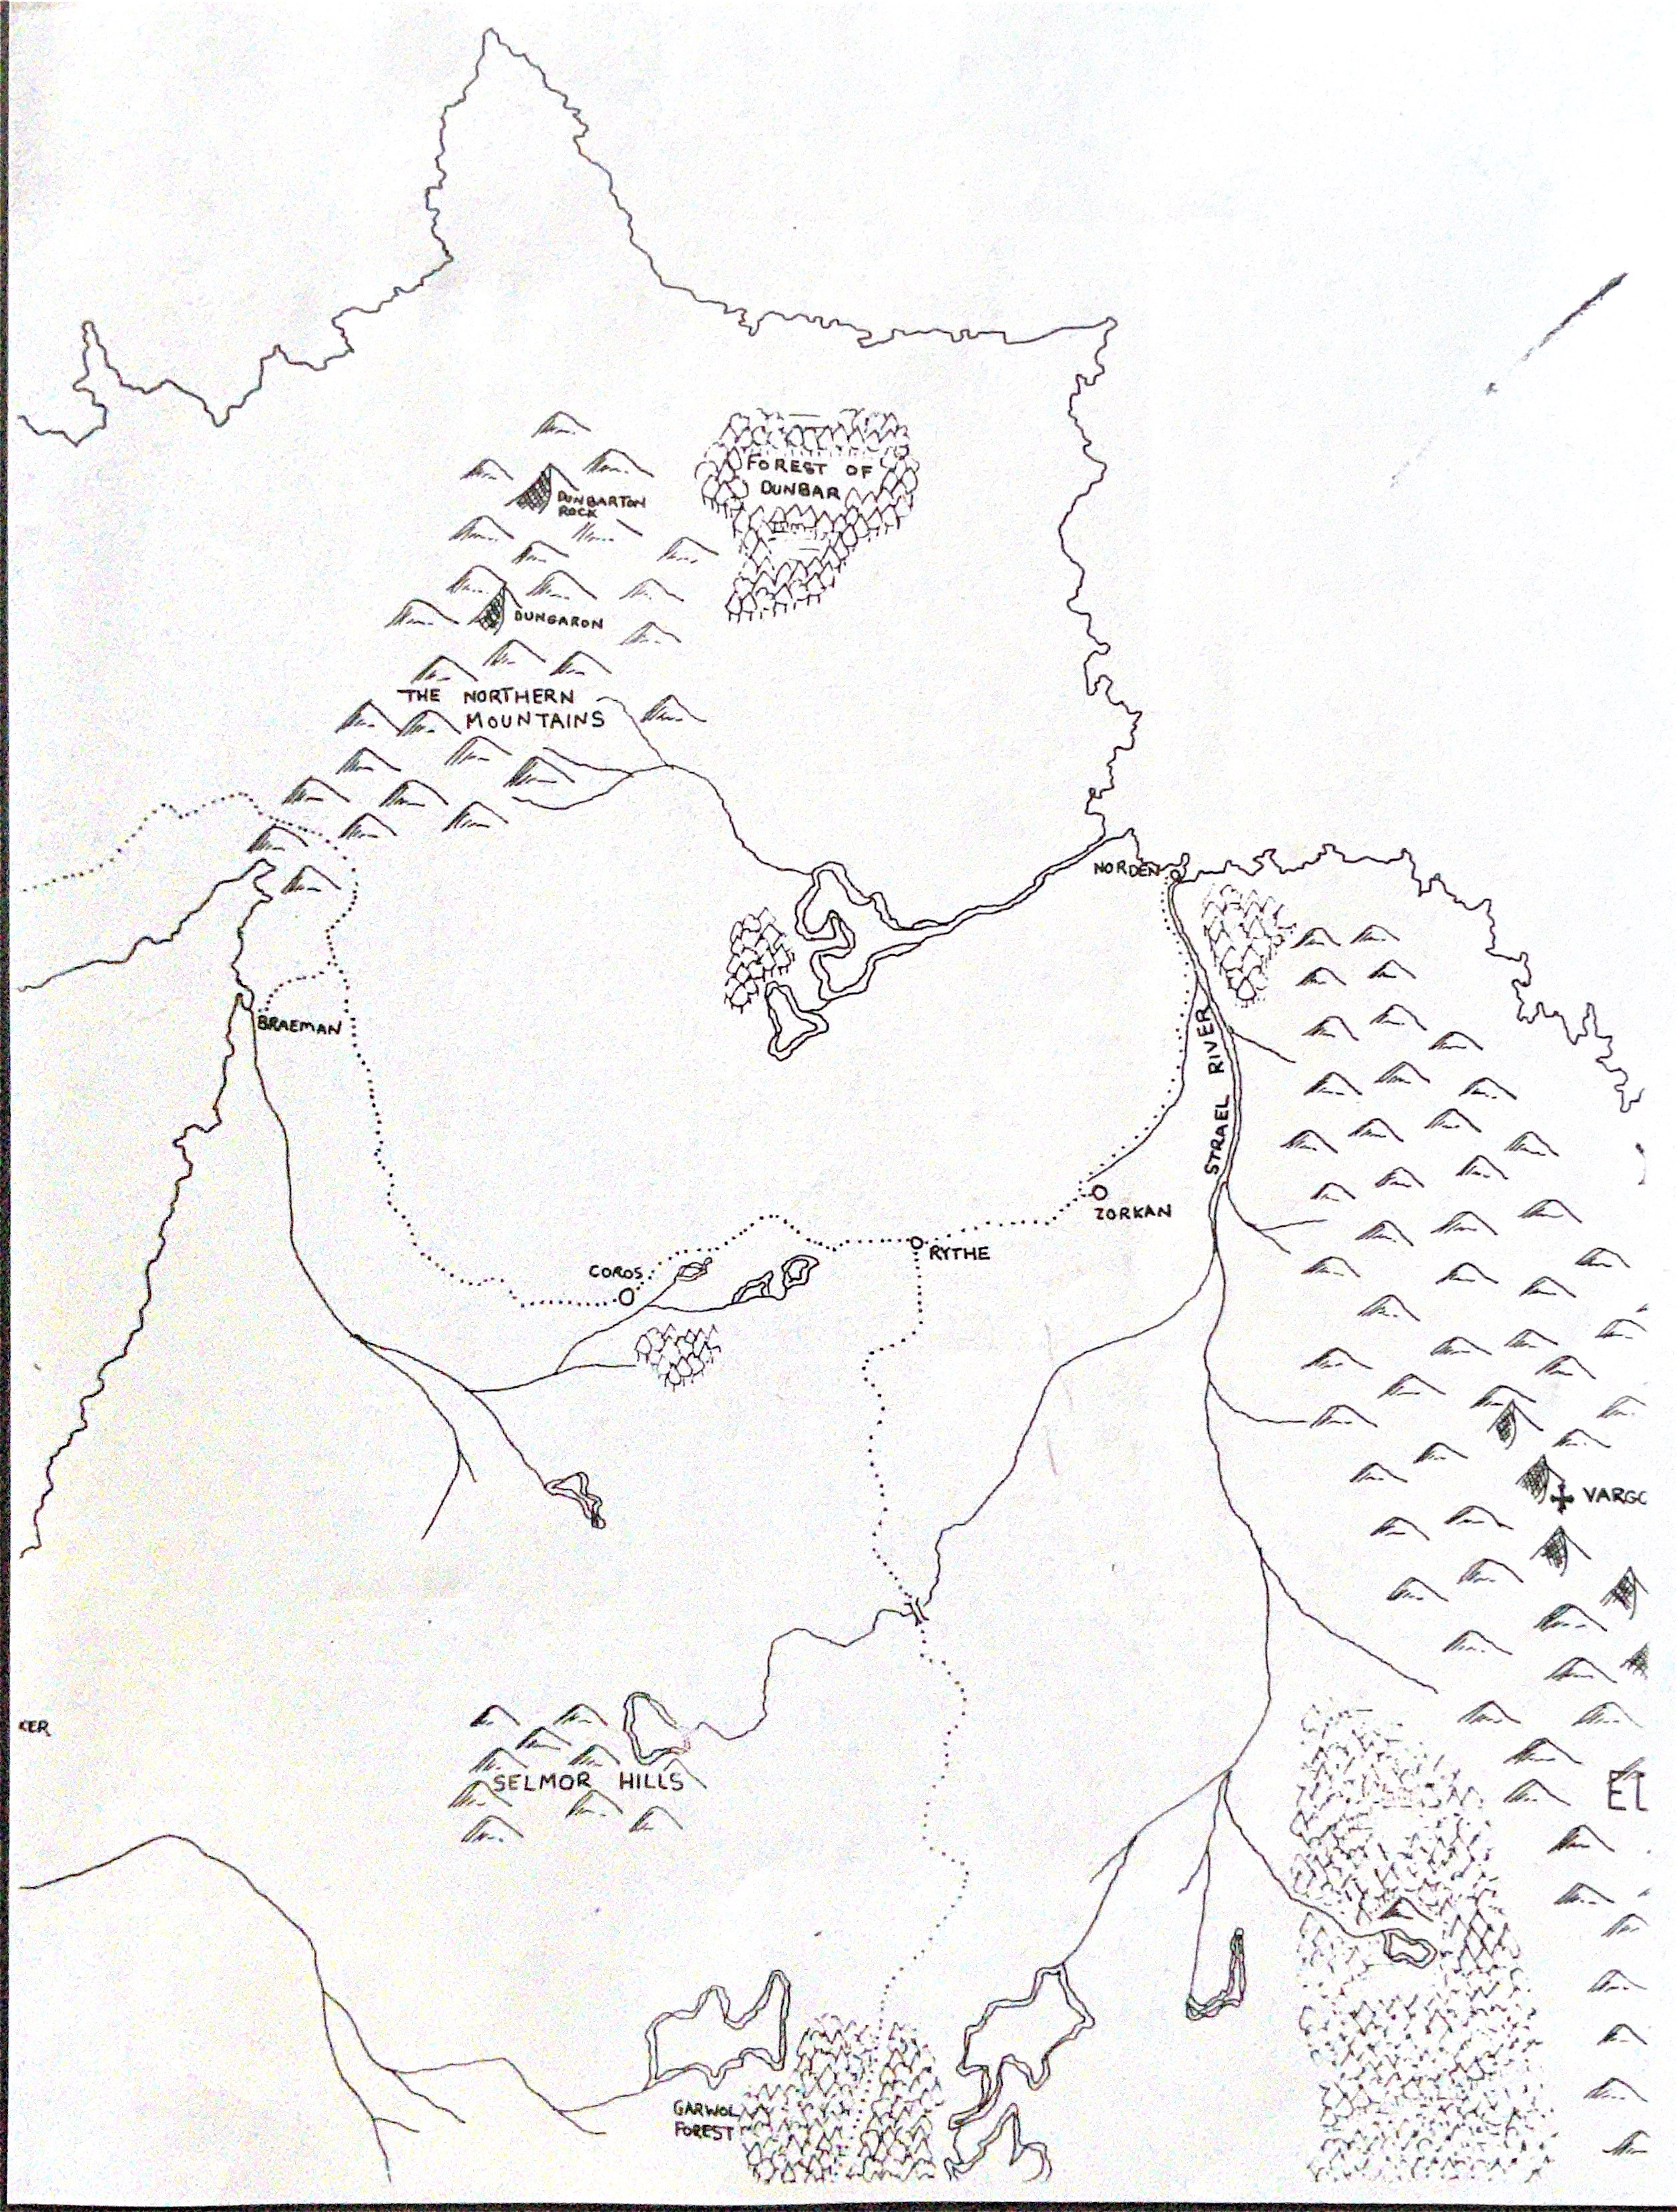 FOREST OF
DUNBAR
DUNBARTON
ROCK
DUNGARON
THE NORTHERN
MOUNTAINS
NORDEN
BRAEMAN
STRAEL RIVER
ZORKAN
RYTHE
COROS
VARGC
KER
SELMOR HILLS
EL
GARWOL
FOREST